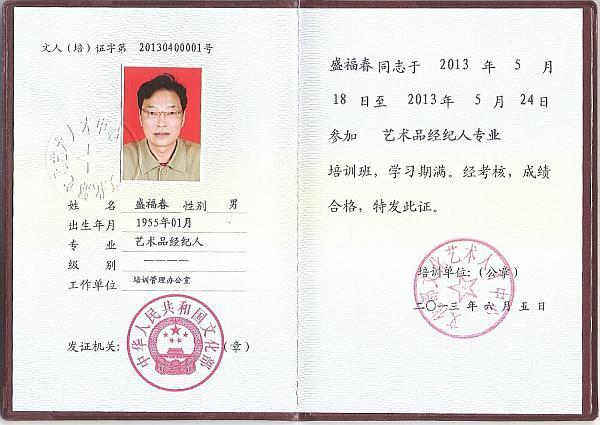 文人（培）证字第 20130400001号
姓 名 盛福春 性别 男
出生年月 1955年01月
专 业 艺术品经纪人
级 别 ————
工作单位 培训管理办公室
发证机关： （章）
中华人民共和国文化部
盛福春 同志于 2013 年 5 月
18 日至 2013 年 5 月 24 日
参加 艺术品经纪人专业
培训班，学习期满。经考核，成绩
合格，特发此证。
培训单位：（公章）
二〇一三 年 六 月 五 日